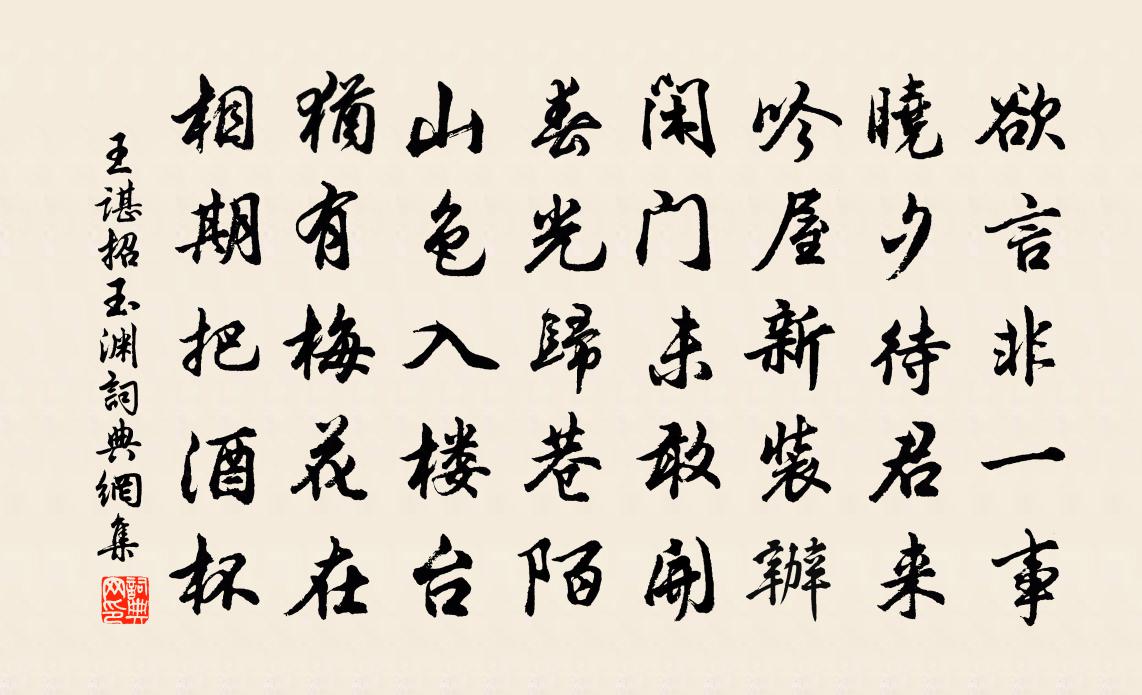 欲言非一事
曉夕待君来
吟屋新裝辦
闲门未敢開
春光歸巷陌
山色入楼台
猶有梅花在
相期把酒杯
王諶招玉渊詞典網集
詞典网印